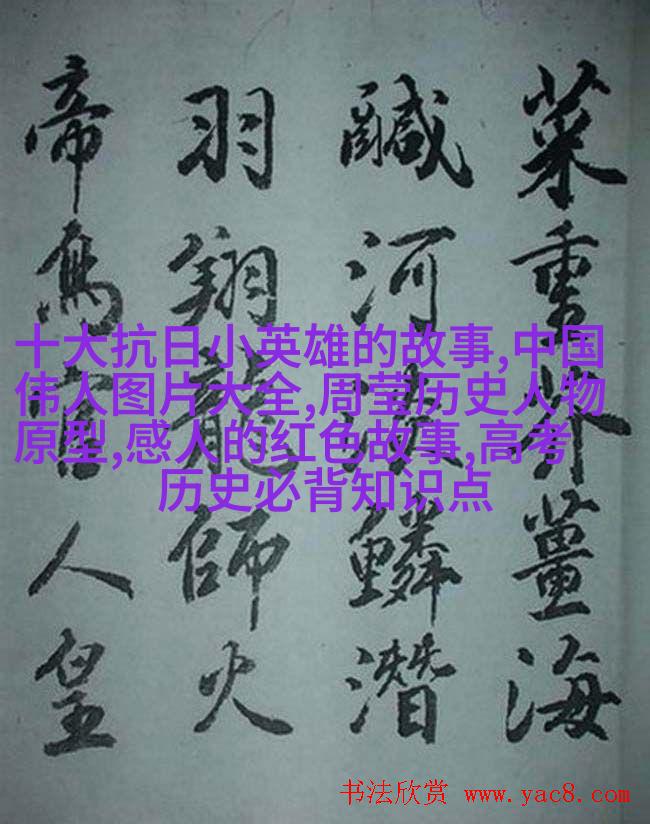 菜重芥薑海
鹹河淡鱗潛
羽翔龍師火
帝鳥官人皇
十大抗日小英雄的故事,中国
伟人图片大全,周莹历史人物
原型,感人的红色故事,高考
历史必背知识点
书法欣赏 www.yac8.com